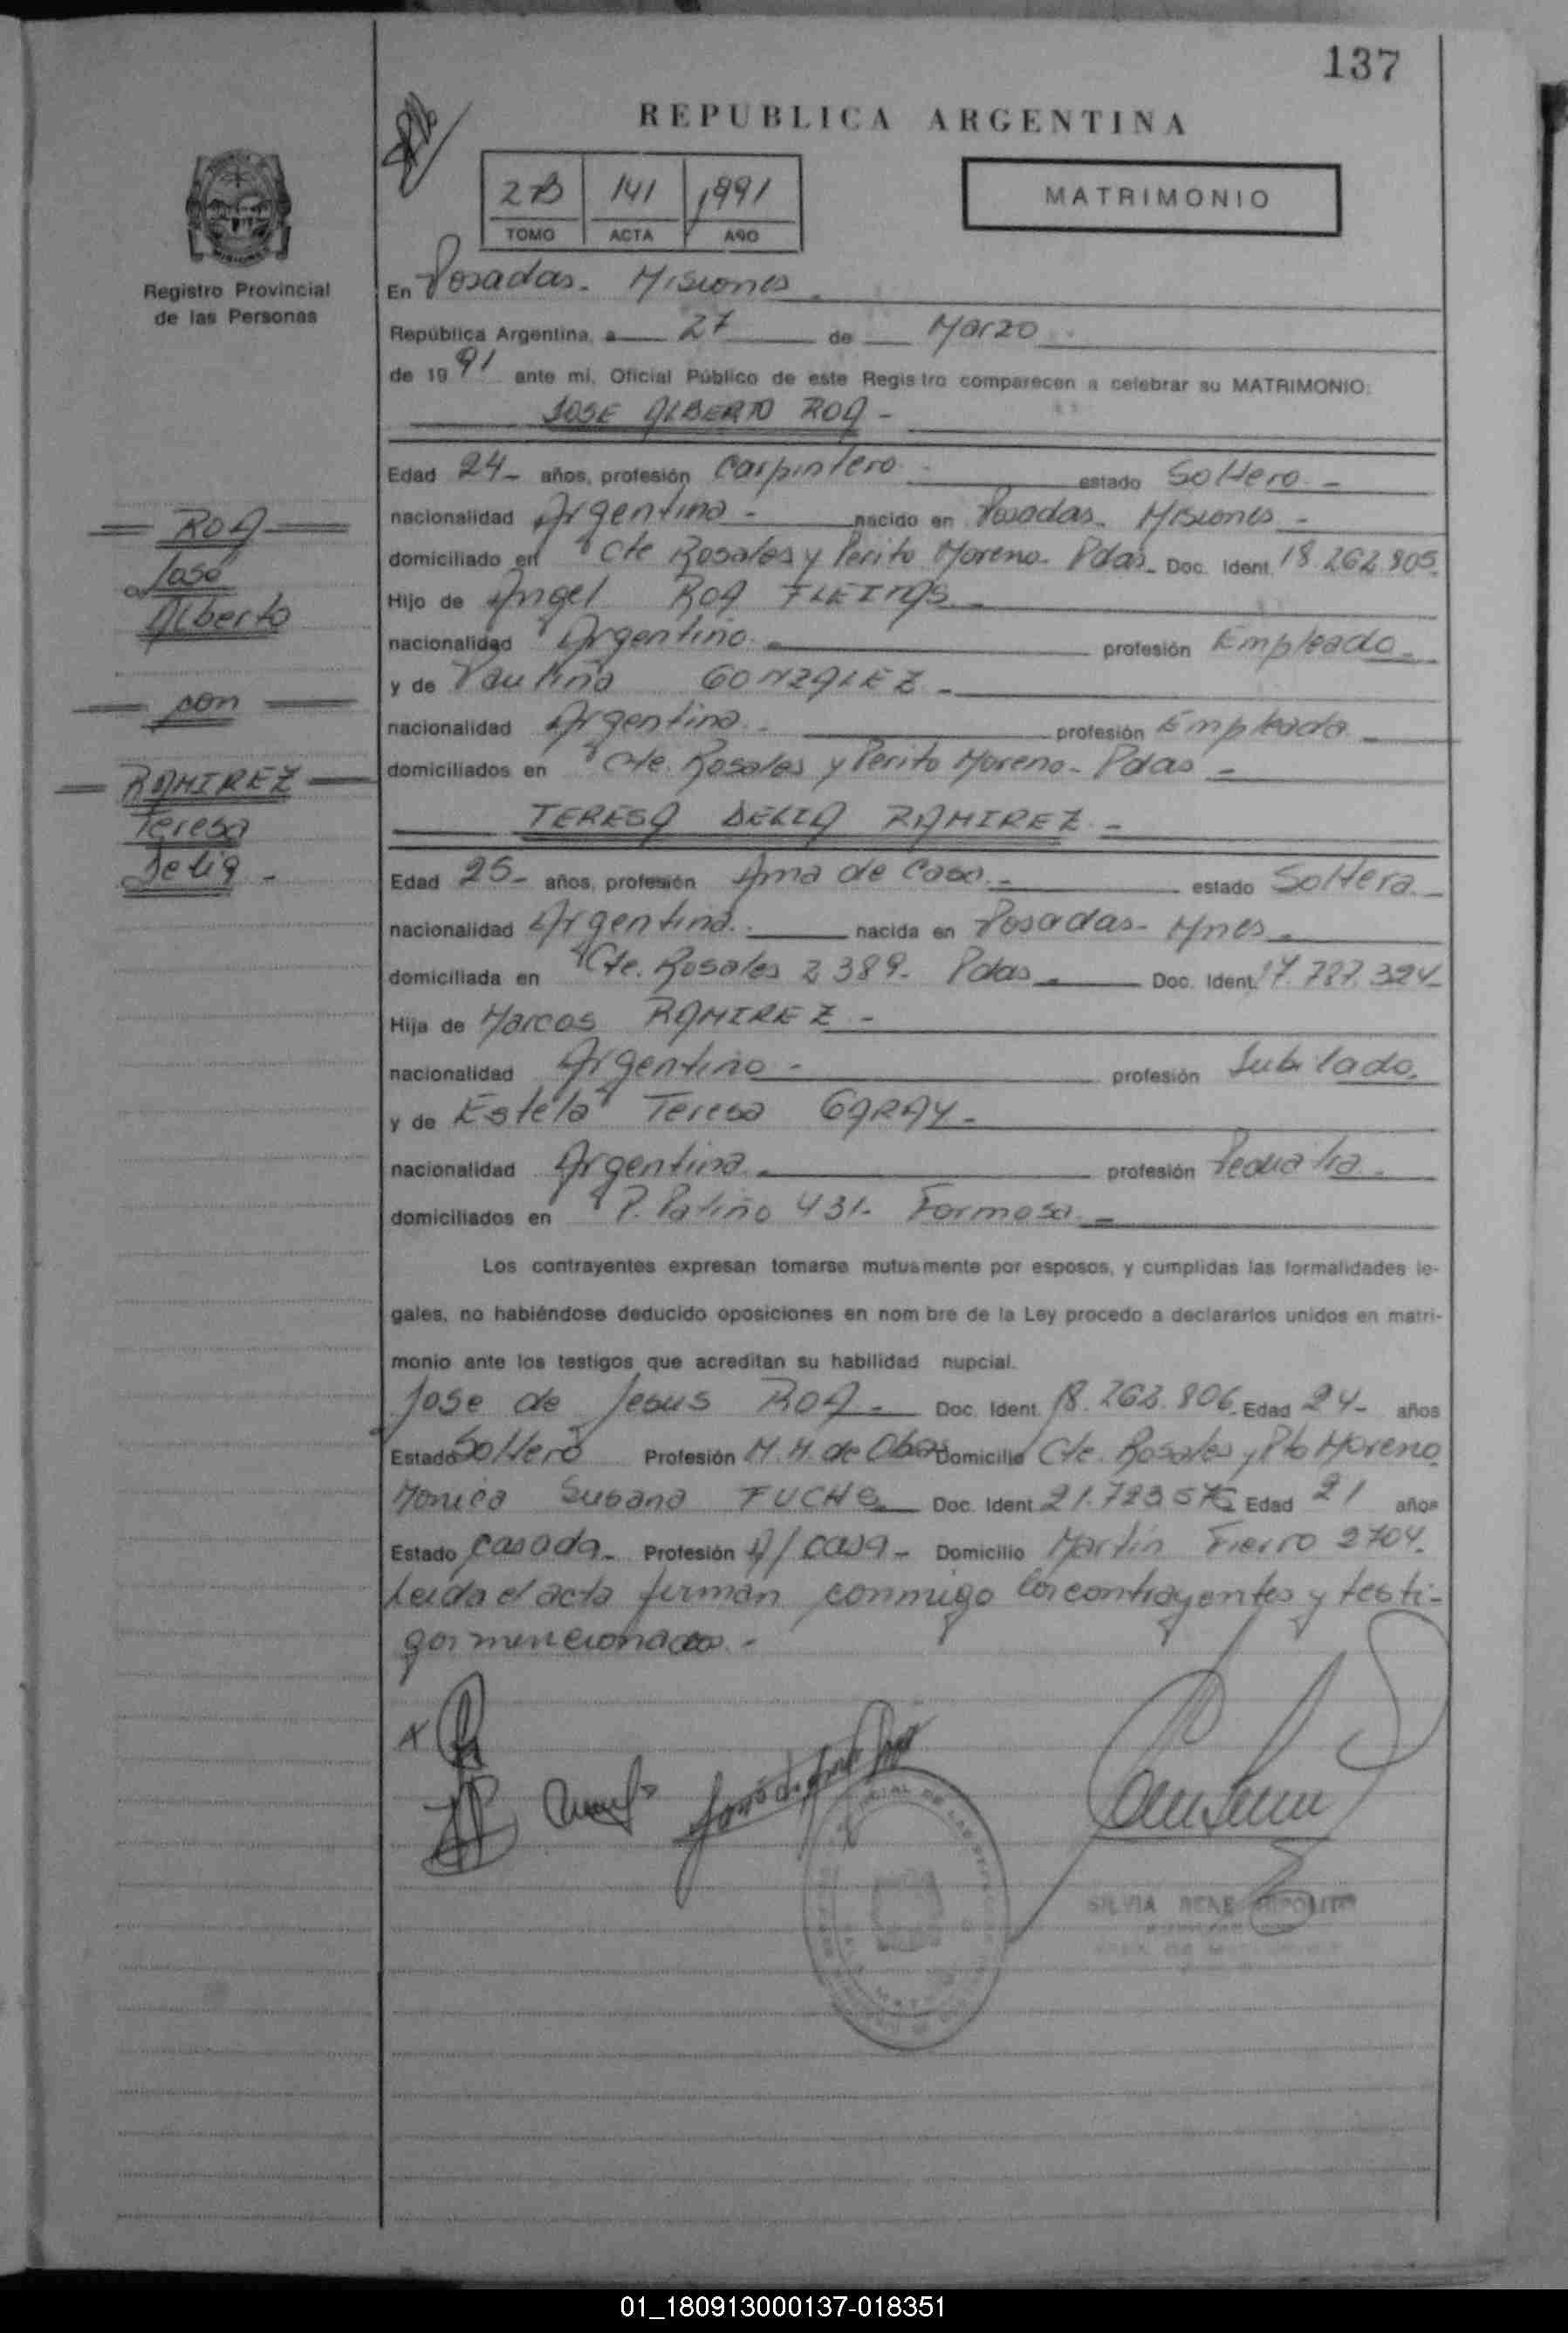 137
REPUBLICA ARGENTINA
2B 141 1991
TOMO ACTA AÑO
MATRIMONIO
Registro Provincial
de las Personas
En Posadas - Misiones
República Argentina, a 27 de Marzo
de 1991 ante mi, Oficial Público de este Registro comparecen a celebrar su MATRIMONIO:
JOSE ALBERTO ROA -
Edad 24 - años, profesión Carpintero - estado Soltero -
nacionalidad Argentina - nacido en Posadas - Misiones -
domiciliado en Cte Rosales y Perito Moreno - Pdas - Doc. Ident. 18.262.805
Hijo de Angel ROA FLEITAS -
nacionalidad Argentino - profesión Empleado -
y de Paulina GONZALEZ -
nacionalidad Argentina - profesión Empleada -
domiciliados en Cte. Rosales y Perito Moreno - Pdas -
TERESA DELIA RAMIREZ -
Edad 25 - años, profesión Ama de Casa - estado Soltera -
nacionalidad Argentina - nacida en Posadas - Mnes -
domiciliada en Cte. Rosales 2389 - Pdas - Doc. Ident. 17.787.324 -
Hija de Marcos RAMIREZ -
nacionalidad Argentino - profesión Jubilado.
y de Estela Teresa GARAY -
nacionalidad Argentina - profesión
domiciliados en P. Patiño 431 - Formosa -
Los contrayentes expresan tomarse mutuamente por esposos, y cumplidas las formalidades le-
gales, no habiéndose deducido oposiciones en nom bre de la Ley procedo a declararlos unidos en matri-
monio ante los testigos que acreditan su habilidad nupcial.
Jose de Jesus ROA - Doc. Ident. 18.262.806 - Edad 24 - años
Estado Soltero Profesión M. M. de Obras Domicilio Cte. Rosales y Pto Moreno
Monica Susana FUCHS Doc. Ident. Edad 21 años
Estado Casada - Profesión A/ casa - Domicilio Martin Fierro 2704.
Leida el acta firman conmigo los contrayentes y testi-
gos mencionados -
ROA
Jose
Alberto
con
RAMIREZ
Teresa
Delia -
SILVIA RENE HIPOLITO
01_180913000137-018351